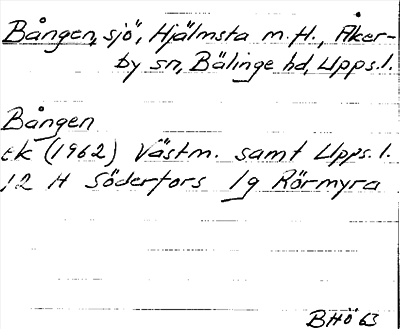 Bången, sjö, Hjälmsta m.fl., Åker-
by sn, Bälinge hd, Upps.l.
Bången
ek (1962) Västm. samt Upps.l.
12 H Söderfors 1g Rörmyra
BHÖ 63